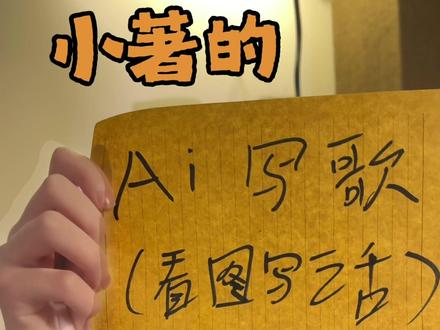 小著的
Ai 写歌
(看图写话)